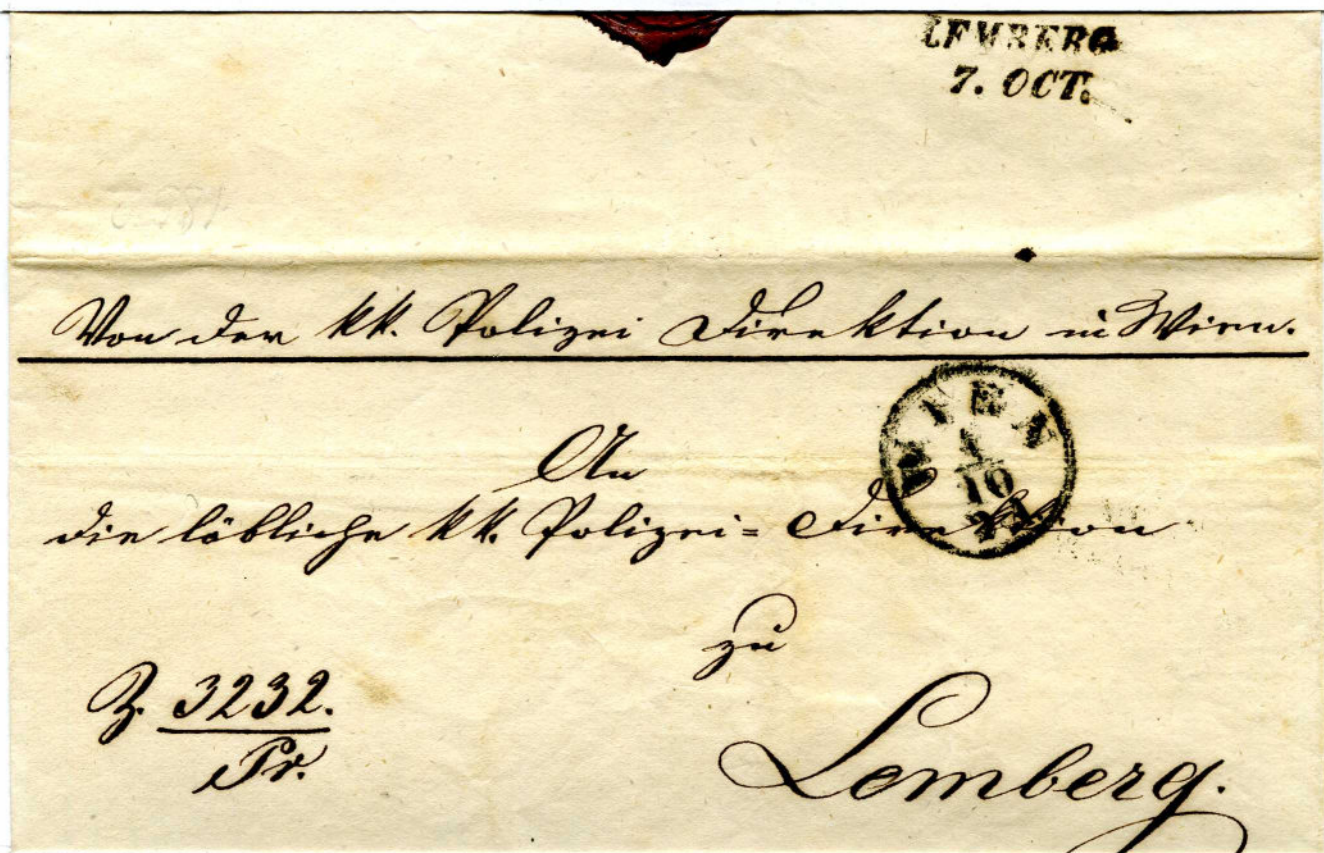 LEMBERG
7. OCT.
Von der kk. Polizei Direktion in Wien.
WIEN
10
An
die löbliche kk. Polizei= Direktion
zu
Z. 3232.
Pr.
Lemberg.